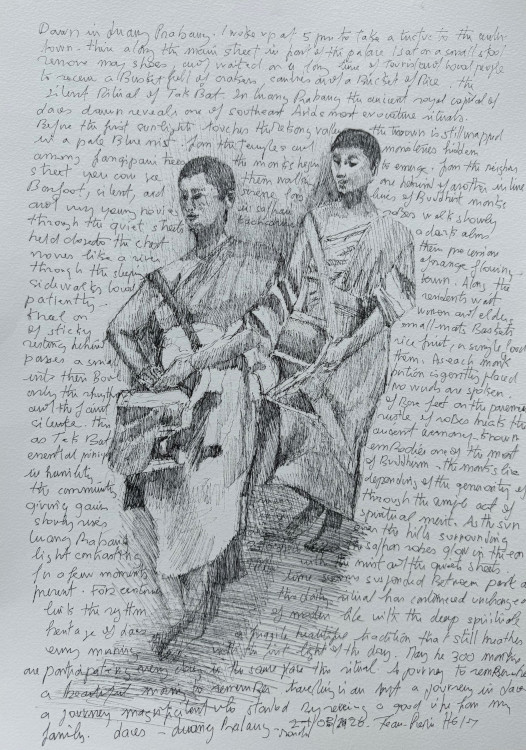 Dawn in Luang Prabang. I wake up at 5 pm to take a tuctuc to the
town. then along the main street in front of the palace I sat on a small stool
remove may shoes and waited on a long line of tourists and local people
to receive a Busket full of crakers, candies and a Bucket of Rice. the
silent Ritual of Tak Bat. In Luang Prabang the ancient royal capital of
Laos dawn reveals one of southeast most evocative rituals.
Before the first sunlight touches the Mekong valley the town is still wrapped
in a pale Blue mist. from the temples and monasteries hidden
among frangipani trees the monks begin to emerge. from the
street you can see them walking one behind another in line
Barefoot, silent, and serene lines of Buddhist monks
and very young novices in saffron robes walk slowly
through the quiet streets alms
held close to the chest their procession
moves like a river of orange flowing
through the sleepy town. Along the
sidewalks local residents wait
patiently women and elders
kneel on small mats Baskets
of sticky rice fruit, a simple food
resting before them. As each monk
passes a small portion is gently placed
into their Bowl no words are spoken.
only the rhythm of Bare feet on the
and the faint rustle of robes breaks the
silence. this ancient known
as Tak Bat embodies one of the most
essential of Buddhism. the monks live
in humility depending of the generosity of
the community through the simple act of
giving gain spiritual merit. As the sun
slowly rises over the hills surrounding
Luang Prabang saffron robes glow in the
light contrasting with the mist and the quiet streets
for a few moments time suspended Between past and
present. For centuries this daily ritual has continued unchanged
links the rythm of modern life with the deep spiritual
heritage of Laos a fragile beautiful tradition that still breathes
every morning with the first light of the day. 300 monks
are participating every day in the same place this ritual. A journey to remember
a beautiful to remember traveling is an a journey in Laos
a journey magnificent who started By a good from my
family. Laos - Luang Prabang - 03/2026. Jean-Pierre